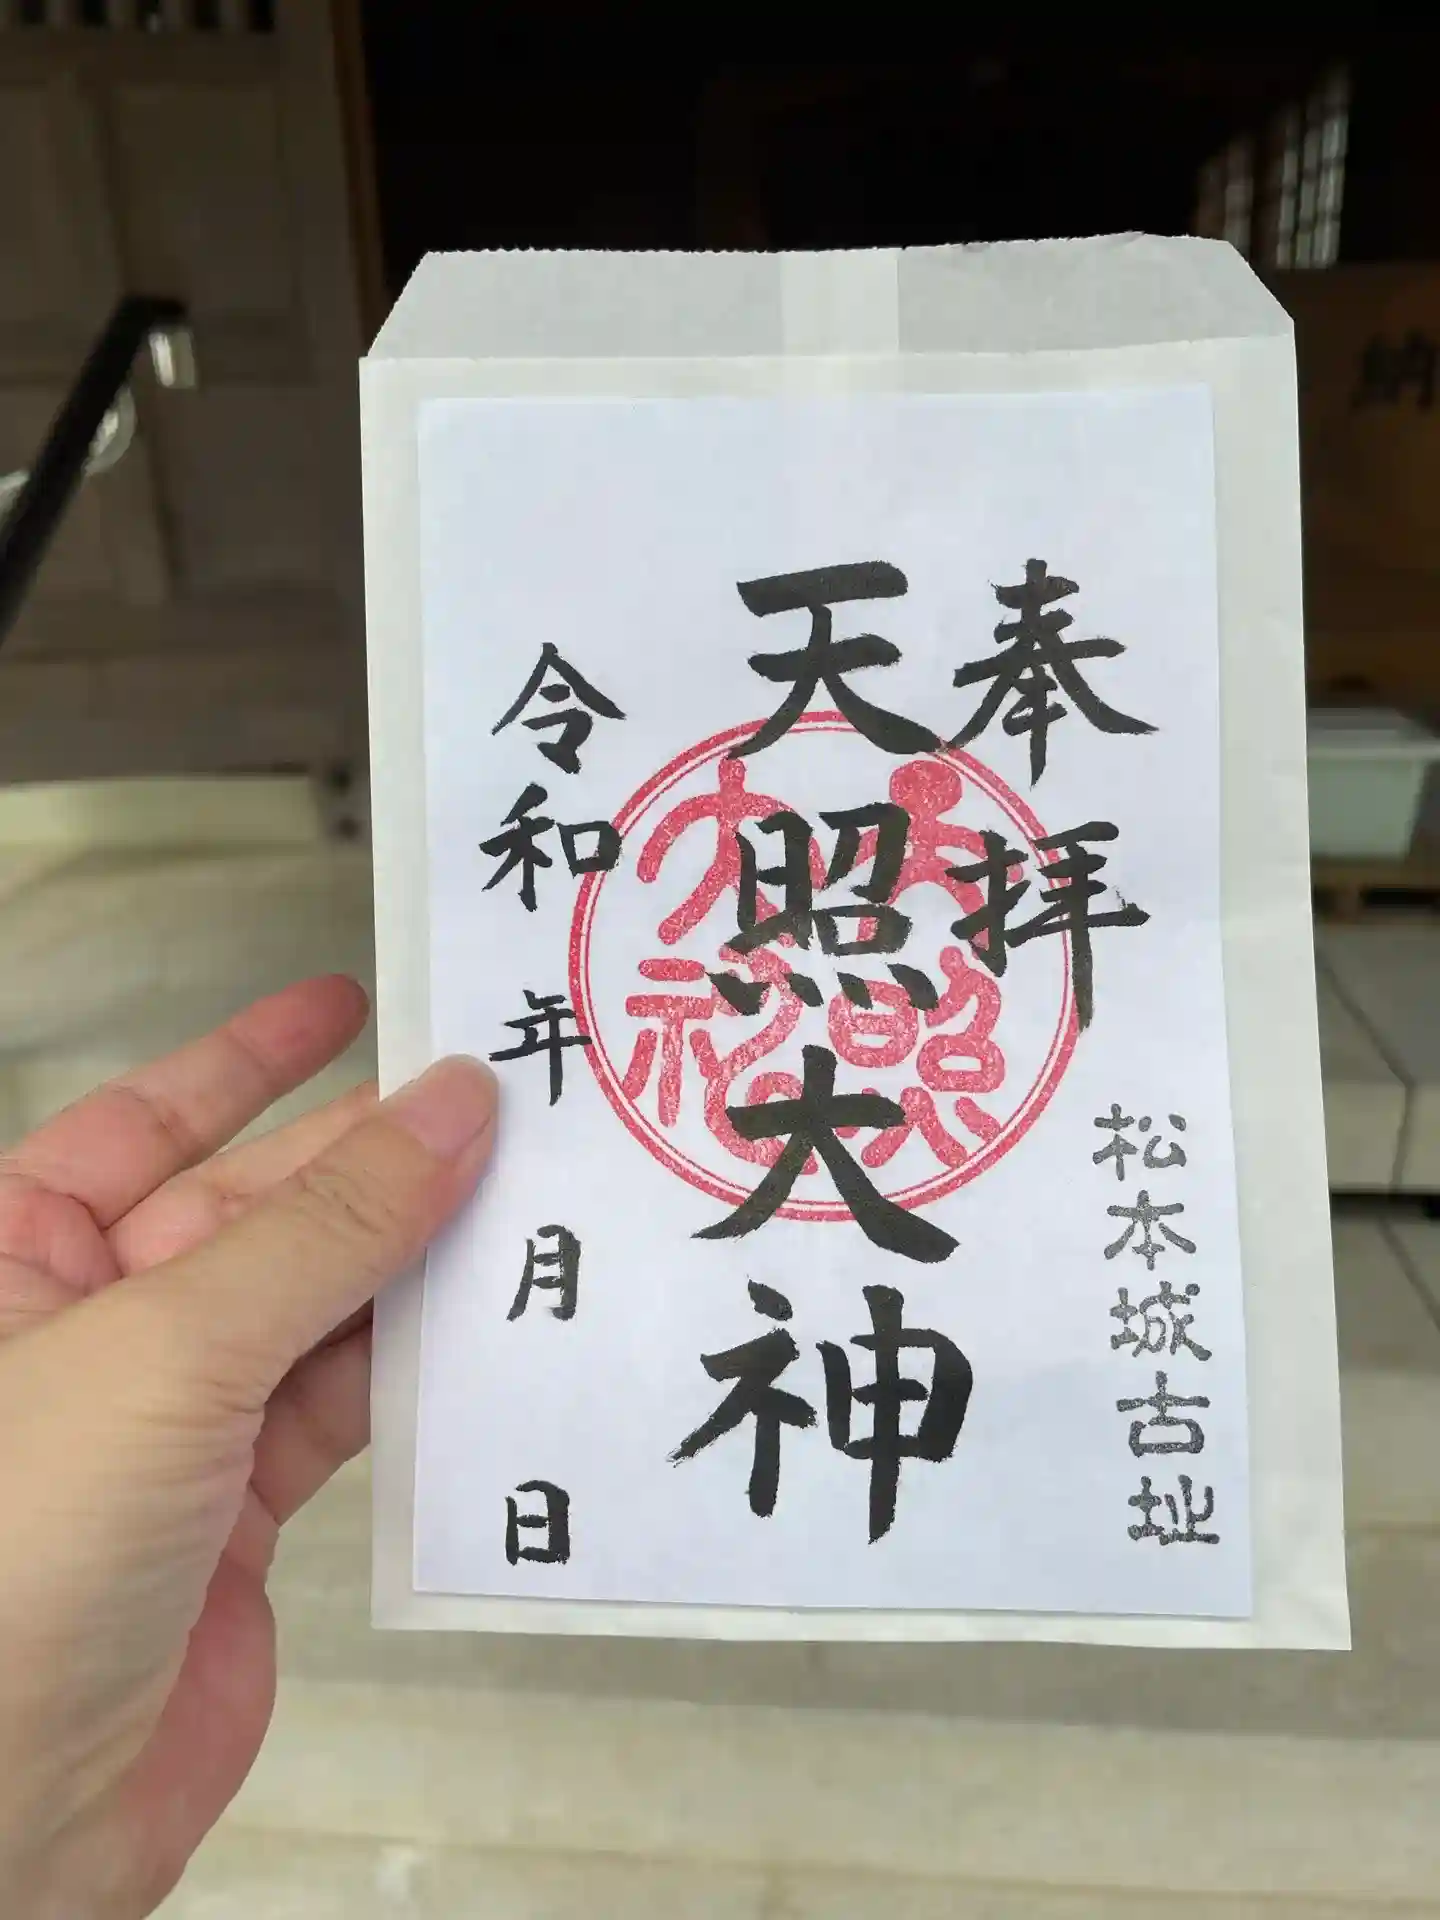 奉拝
松本城古址
天照大神
令和 年 月 日
納